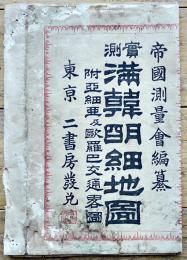 帝國測量會編纂
實測
滿韓明細地圖
附亞細亞及歐羅巴交通密圖
東京 二書房發兌